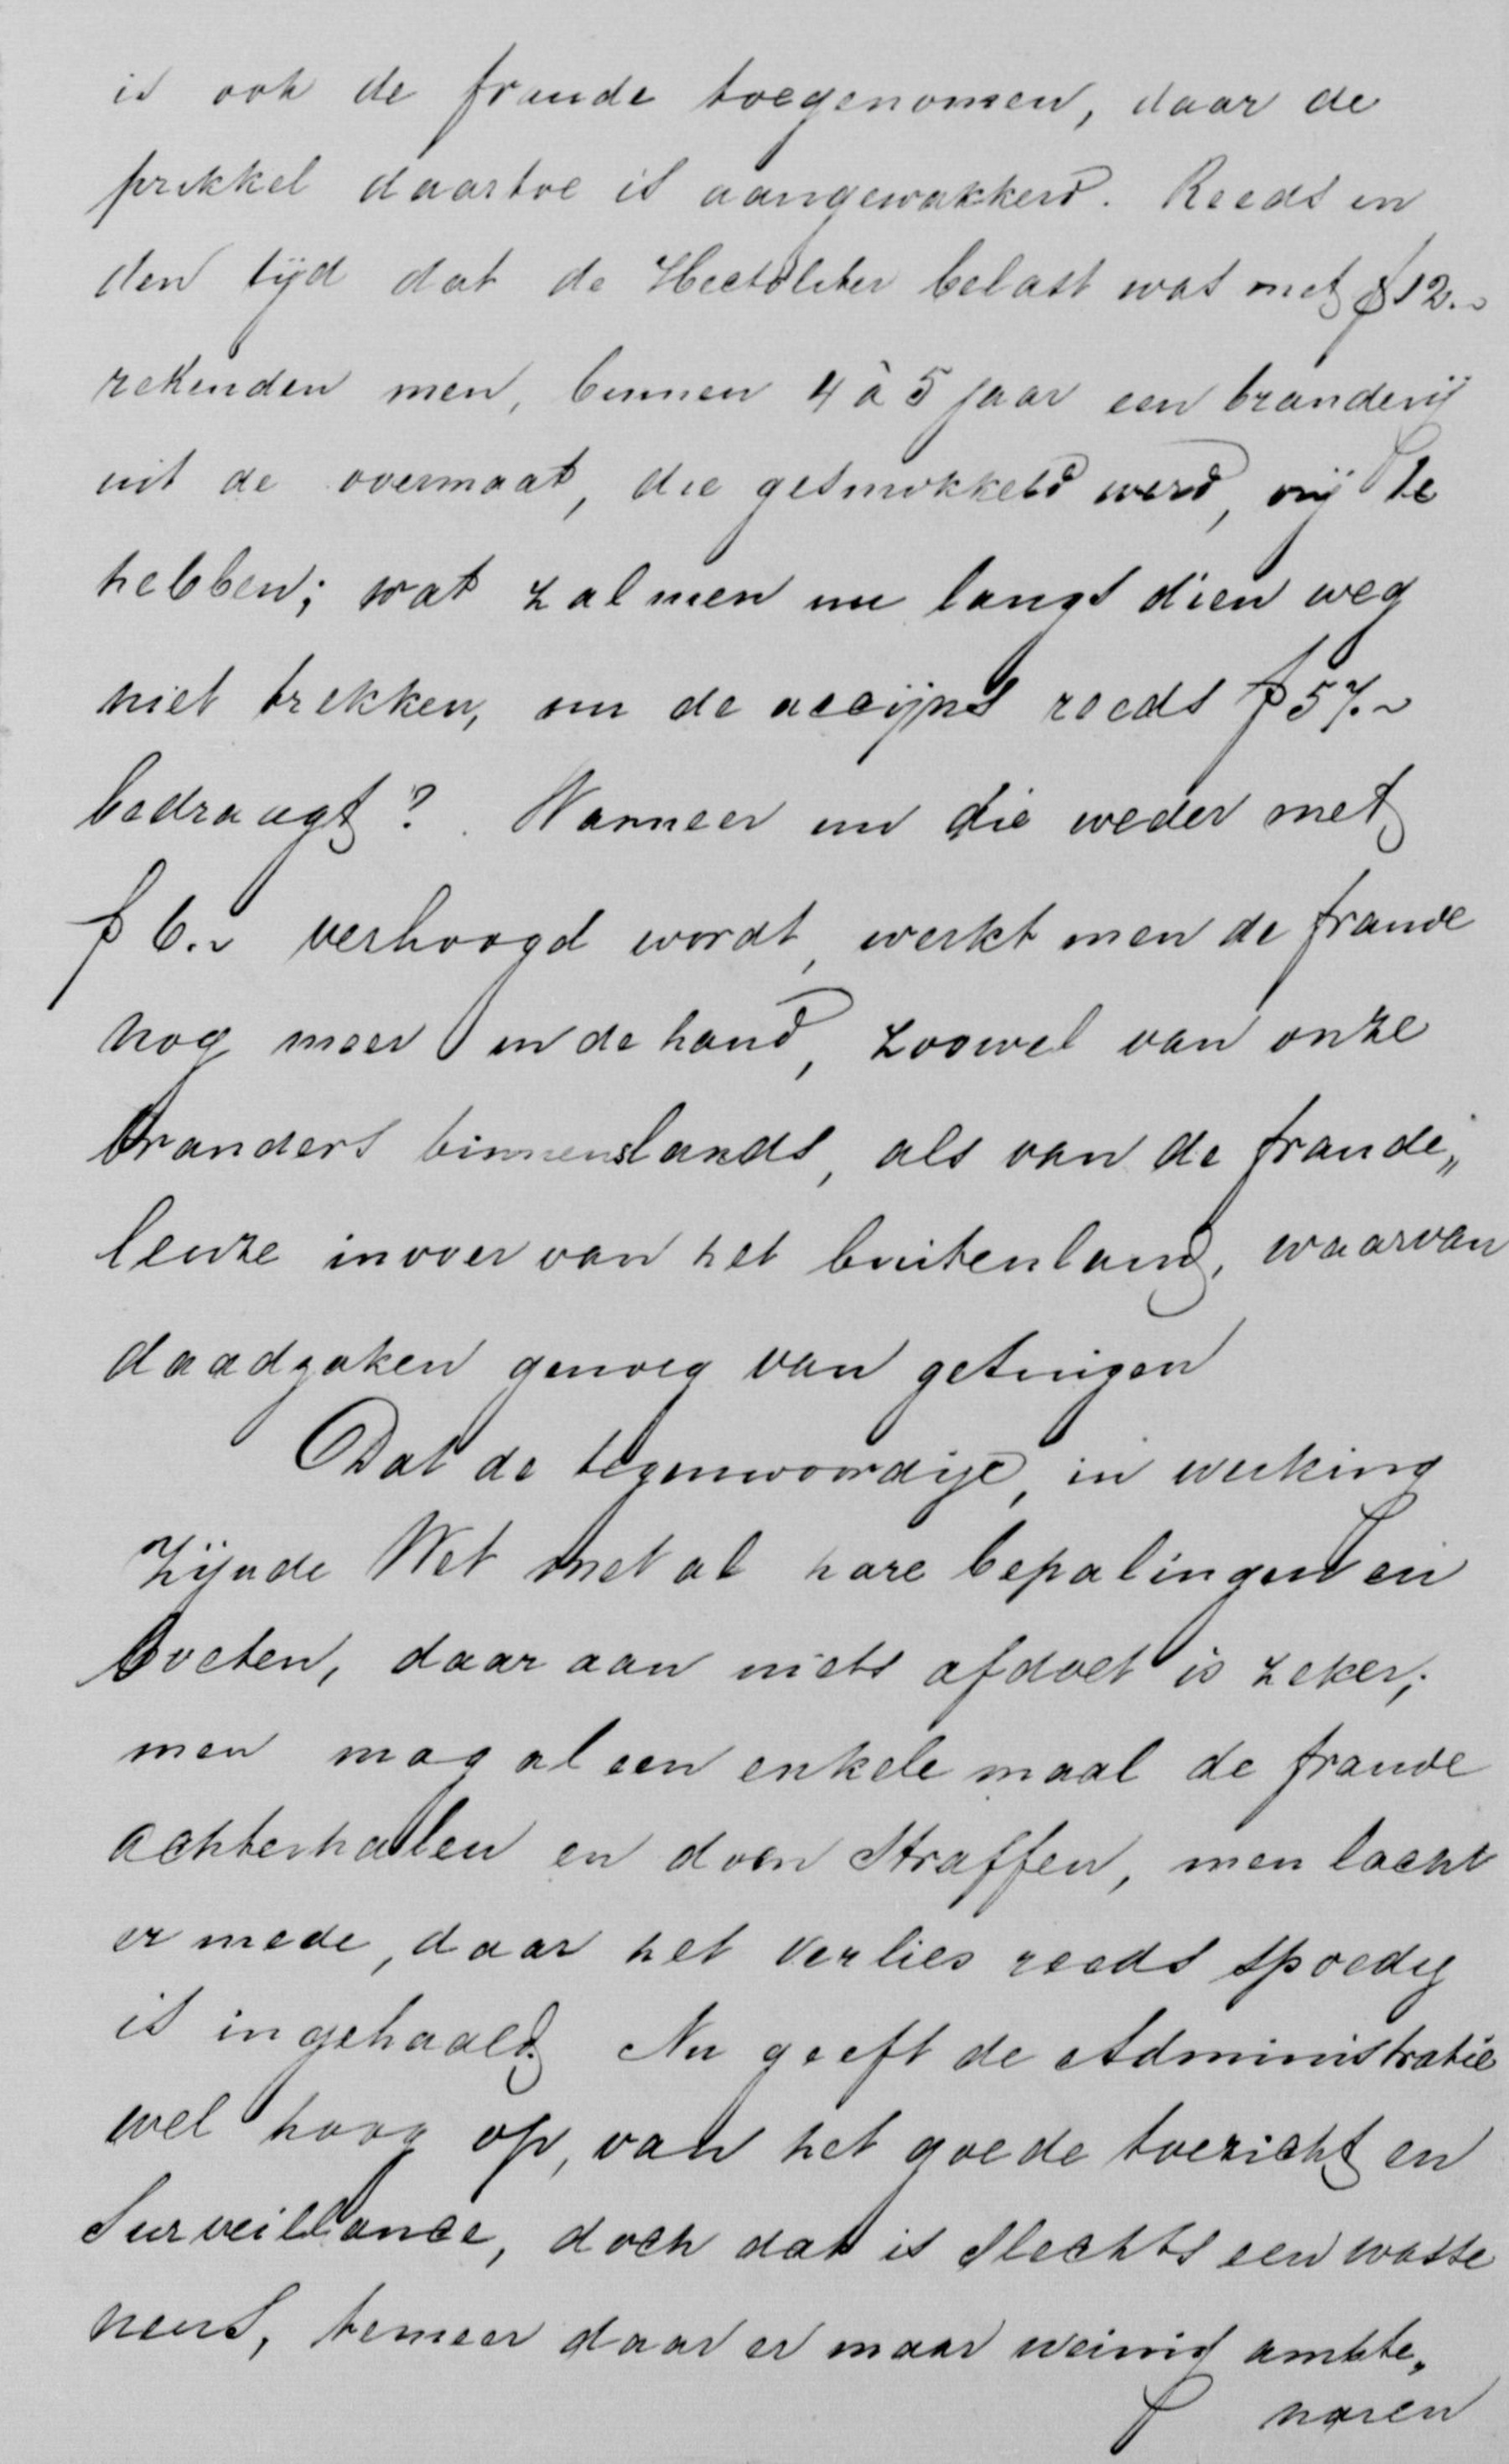 is ook de fraude toegenomen, daar de
prikkel daartoe is aangewakkerd. Reeds in
den tijd dat de Hectoliter belast was met ƒ 12.-
rekenden men, binnen 4 à 5 jaar een branderij
uit de overmaat, die gesmokkeld werd, vrij te
hebben; wat zal men nu langs dien weg
niet trekken, nu de accijns reeds ƒ 57.-
bedraagt? Wanneer nu die weder met
ƒ 6.- verhoogd wordt, werkt men de fraude
nog meer in de hand, zoowel van onze
branders binnenslands, als van de fraude„
leuze invoer van het buitenland, waarvan
daadzaken genoeg van getuigen
Dat de tegenwoordige, in werking
zijnde Wet met al hare bepalingen en
boeten, daar aan niets afdoet is zeker;
men mag al een enkele maal de fraude
achterhalen en doen straffen, men lacht
er mede, daar het verlies reeds spoedig
is ingehaald. Nu geeft de Administratie
wel hoog op, van het goede toezicht en
Surveillance, doch dat is slechts een wasse
neus, temeer daar er maar weinig ambte„
naren